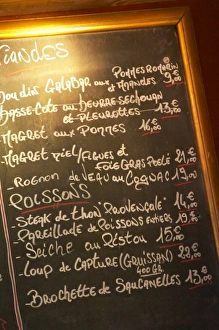 Viandes
Boudin Galabar aux Pommes Romarin
et Mangues 9,00
Basse-Côte au Beurre Sechouan
et Pleurottes 13,00
Magret aux Pommes 16,00
Magret Miel/Figues et
Foie Gras Poêlé 21,00
- Rognon de Veau au Cognac 19,00
Poissons
- Steak de thon Provençale 14,00
- Pareillade de Poissons Entiers 19,00
- Seiche au Pistou 15,00
- Loup de Capture (Gruissan) 22,00
400 GR
- Brochette de St Jacquelles 13,00